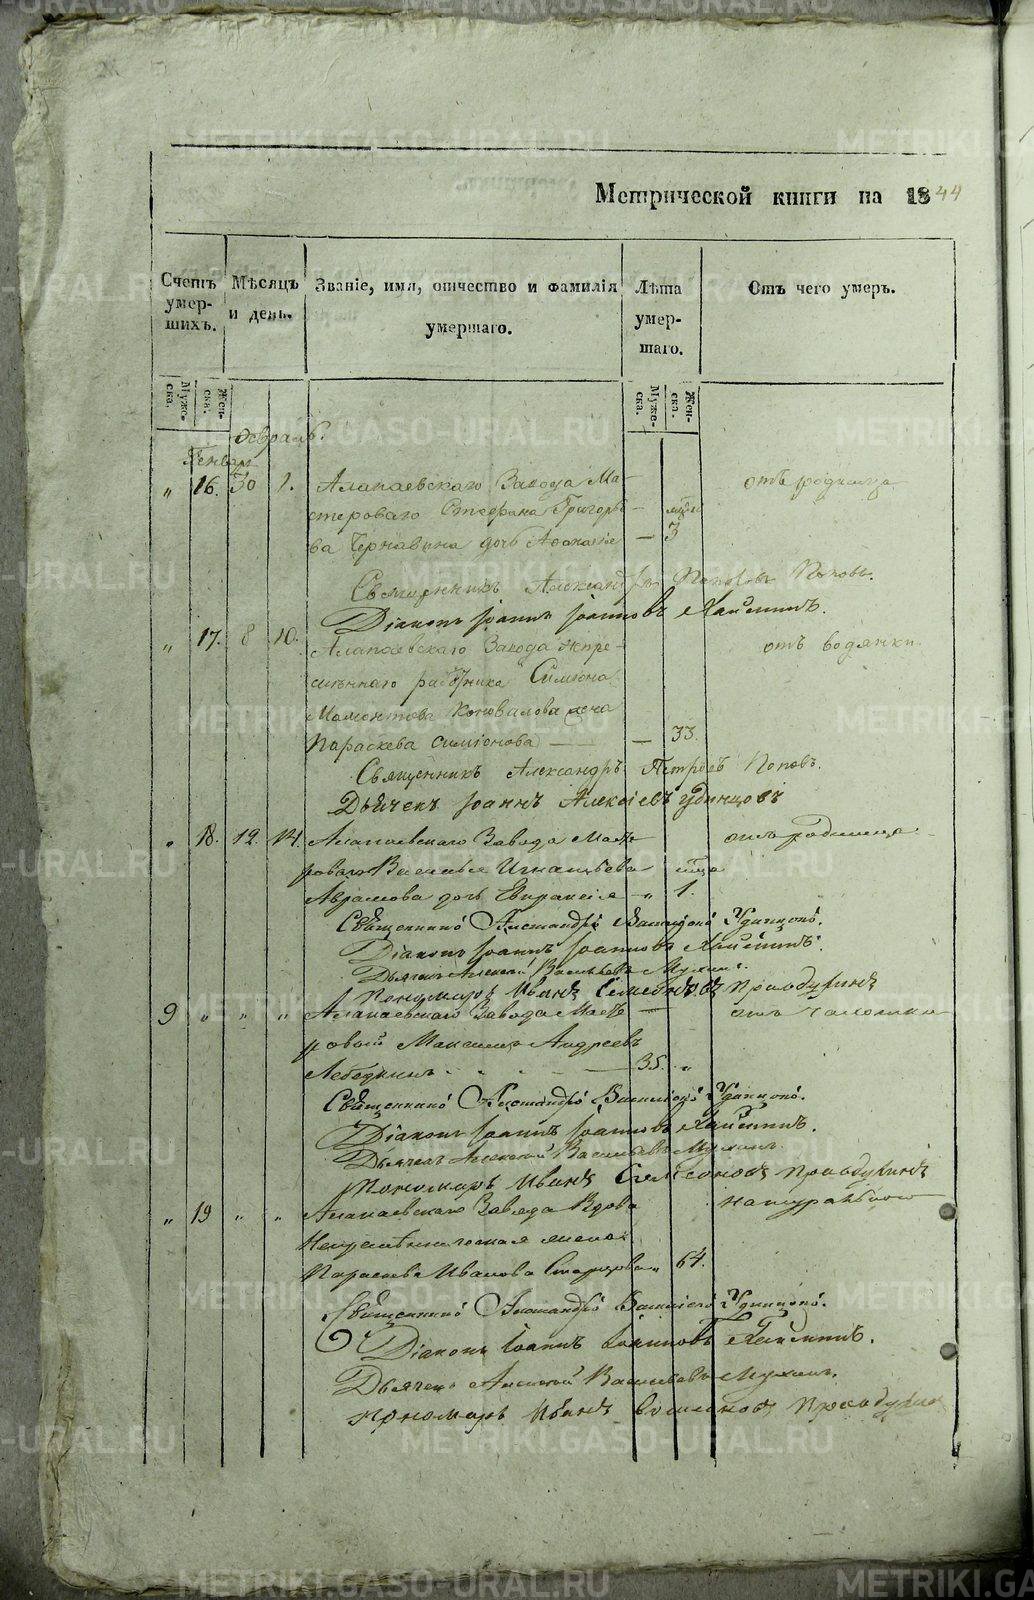 Метрической книги на 1844
Счетъ умер- шихъ.
Мѣсяцъ и день.
Званіе, имя, отчество и фамилія умершаго.
Лѣта умер- шаго.
Отъ чего умеръ.
Муже- ска.
Жен- ска.
Муже- ска.
Жен- ска.
Февраль.
Генварь
„ 16. 30 1. Алапаевскаго Завода Ма- отъ родимца
стероваго Стефана Григорь-
ева Чернавина дочь Афанасіе — 3
Священникъ Александръ Петровъ Поповъ.
Діаконъ Іоаннъ Іоанновъ
„ 17. 8 10. Алапаевскаго Завода непре- отъ водянки
мѣннаго работника Симіона
Мамонтова Коновалова жена
Параскева Симіонова — — 33.
Священникъ Александръ Петровъ Поповъ.
Дьячекъ Іоаннъ Алексіевъ Удинцовъ
„ 18. 12. 14. Алапаевскаго Завода Масте- отъ родимца
роваго Василья Игнатьева мѣсяца
Абрамова дочь Евпраксіе — „ 1.
Священникъ Александръ Василіевъ Удинцовъ.
Діаконъ Іоаннъ Іоанновъ
Дьячекъ Алексѣй Васильевъ Мухинъ.
Пономарь Иванъ Семеновъ
9 „ „ „ Алапаевскаго Завода Масте-
ровой Максимъ Андреевъ
Лебедкинъ — 35. „
Священникъ Александръ Василіевъ Удинцовъ.
Діаконъ Іоаннъ Іоанновъ
Дьячекъ Алексѣй Васильевъ Мухинъ.
Пономарь Иванъ Семеновъ
„ 19 „ „ Алапаевскаго Завода Вдова натурально
жена
Параскева Иванова „ 64.
Священникъ Александръ Василіевъ Удинцовъ.
Діаконъ Іоаннъ Іоанновъ
Дьячекъ Алексѣй Васильевъ Мухинъ.
Пономарь Иванъ Семеновъ
METRIKI.GASO-URAL.RU